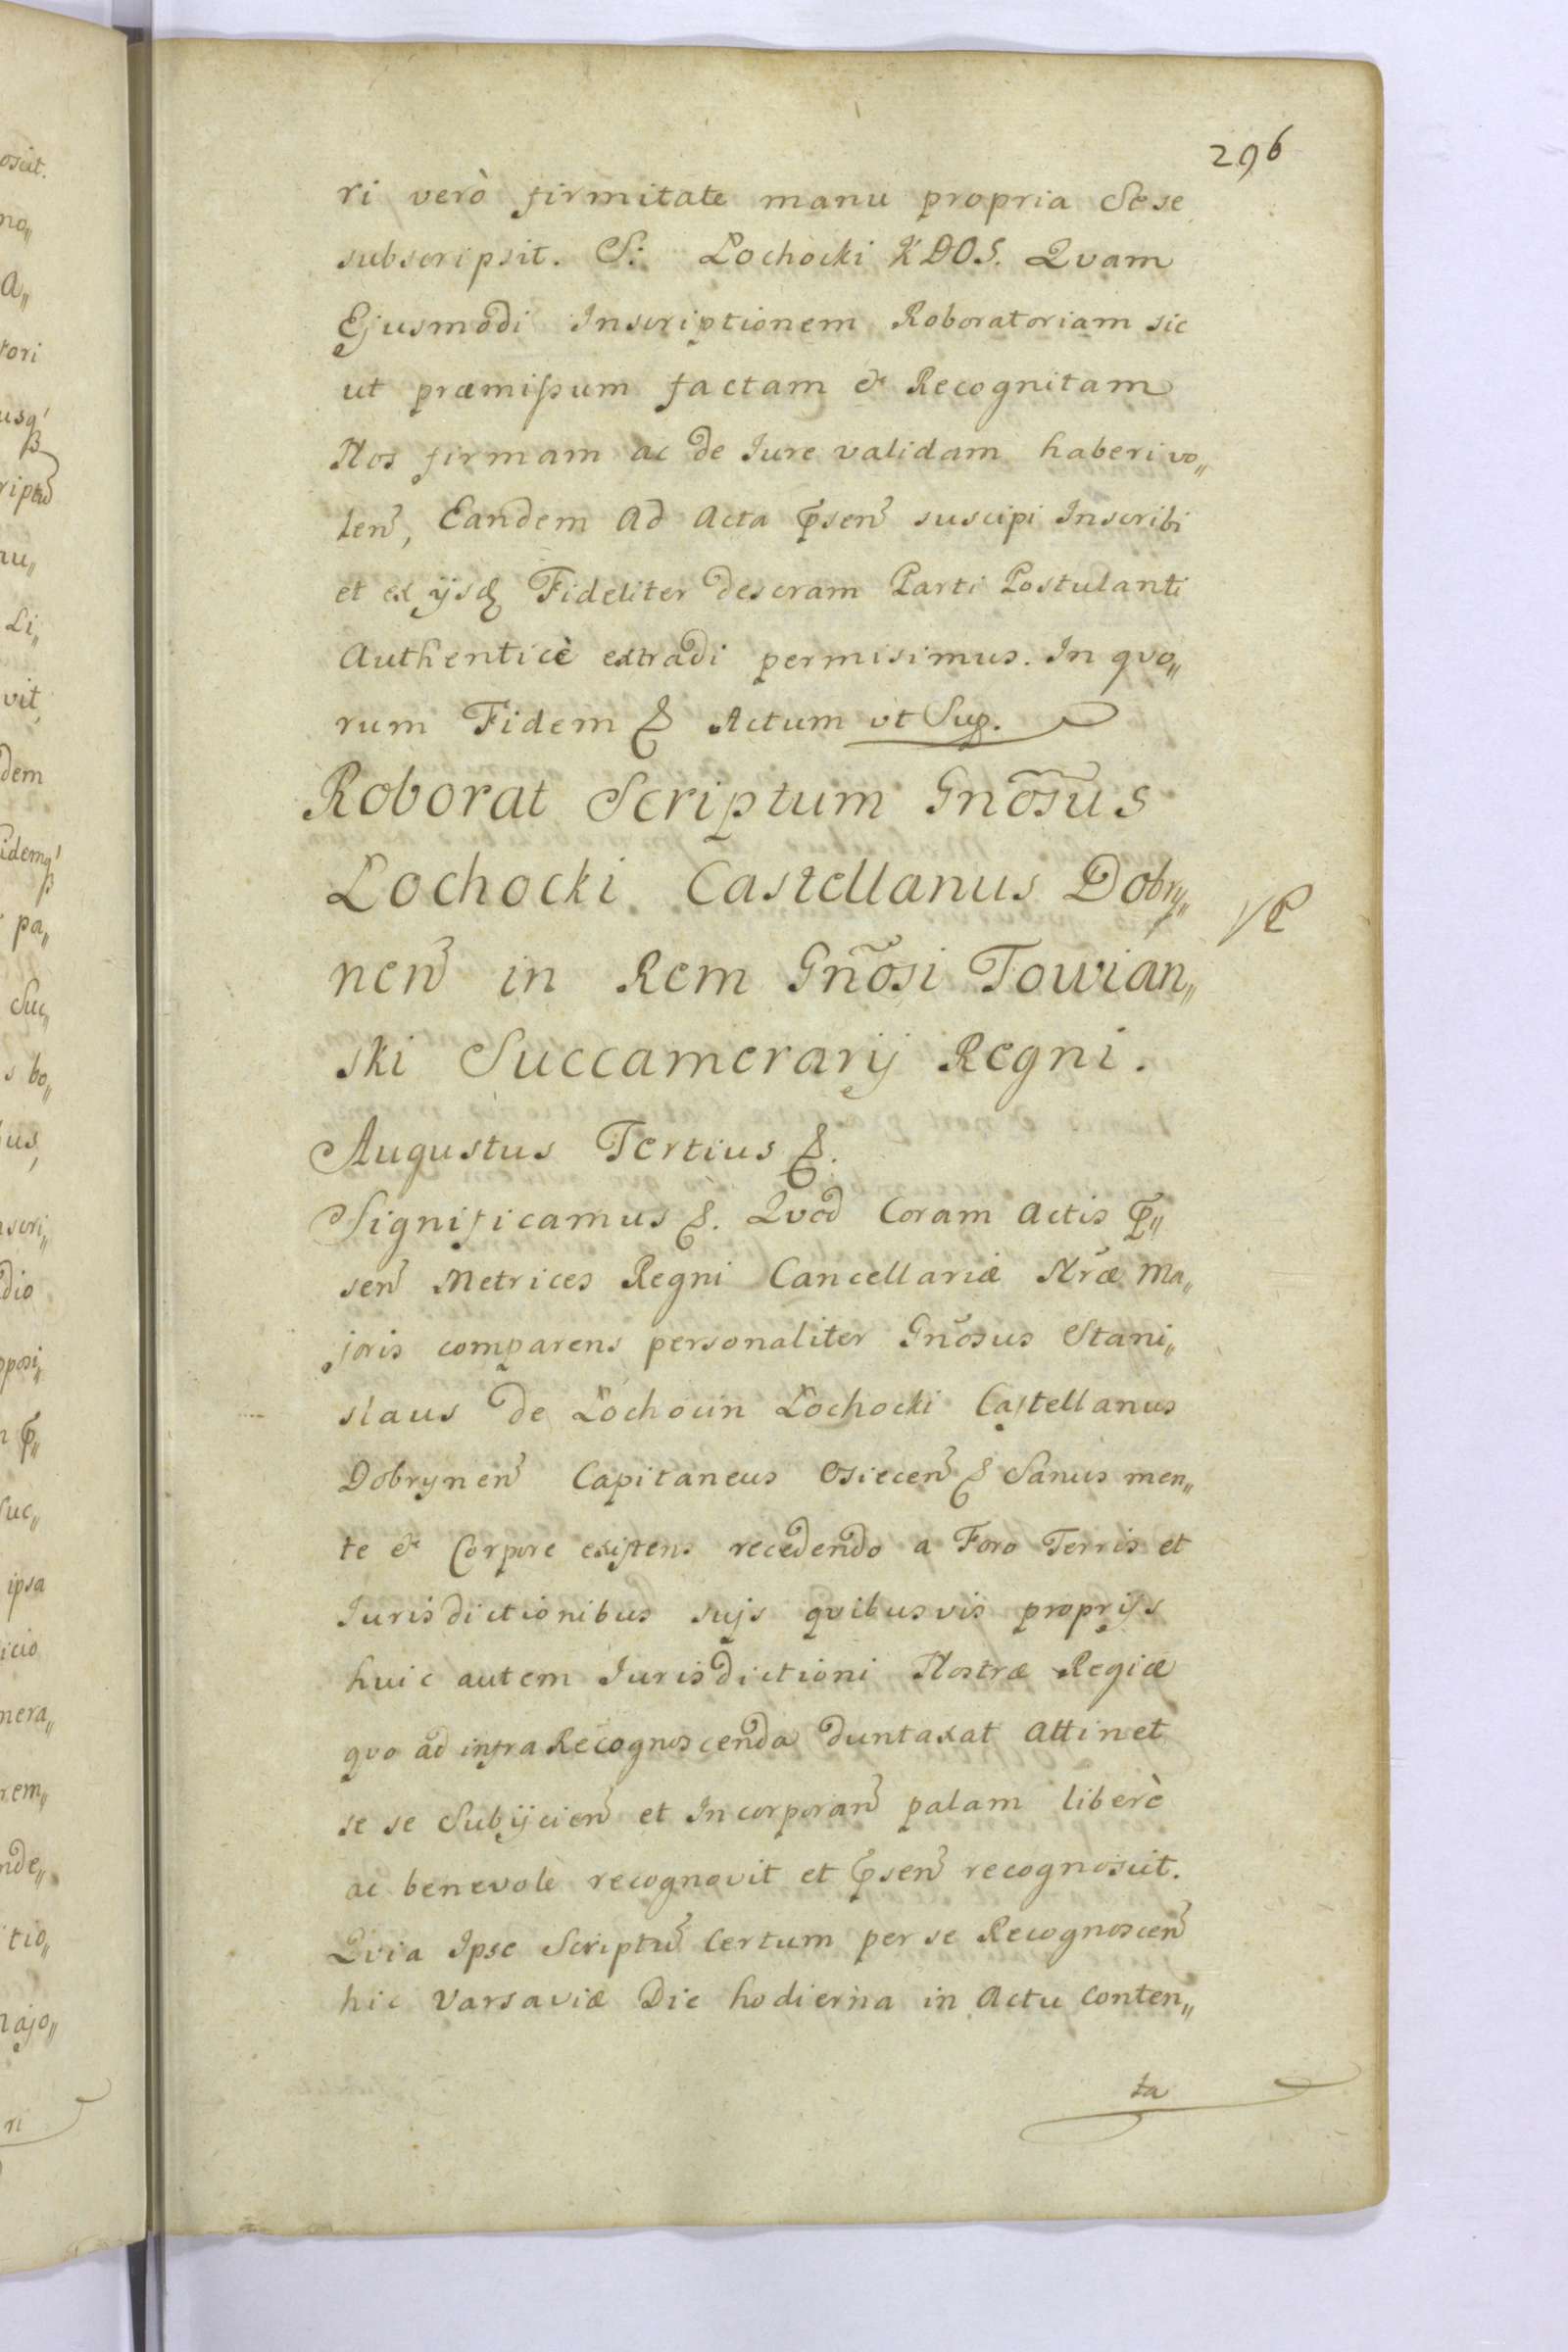 296
ri verò firmitate manu propria Sese
subscripsit. S. Łochocki KDOS. Qvam
Ejusmodi Inscriptionem Roboratoriam sic
ut præmissum factam & Recognitam
Nos firmam ac de Iure validam haberi vo„
len̄, Eandem Ad Acta p̄sen̄ suscipi Inscribi
et ex ijsq Fideliter descram Parti Postulanti
Authenticè extradi permisimus. In qvo„
rum Fidem & Actum vt Sup.
Roborat Scriptum Gnõsus
Łochocki Castellanus Dobry„
nen̄ in Rem Gnõsi Towian„
ski Succamerarij Regni.
Augustus Tertius &.
Significamus &. Qvod Coram Actis p̄„
sen̄ Metrices Regni Cancellariæ Nræ Ma„
joris comparens personaliter Gnõsus Stani„
slaus de Łochocin Łochocki Castellanus
Dobrynen̄ Capitaneus Osiecen̄ & Sanus men„
te & Corpore existens recedendo a Foro Terris et
Iurisdictionibus sujs qvibusvis proprijs
huic autem Iurisdictioni Nostræ Regiæ
qvo ad infra Recognoscenda duntaxat Attinet
se se Subijcien̄ et Incorporan̄ palam liberè
ac benevolè recognovit et p̄sen̄ recognoscit.
Qvia Ipse Scriptū Certum per se Recognoscen̄
hic Varsaviæ Die hodierna in Actu Conten„
ta